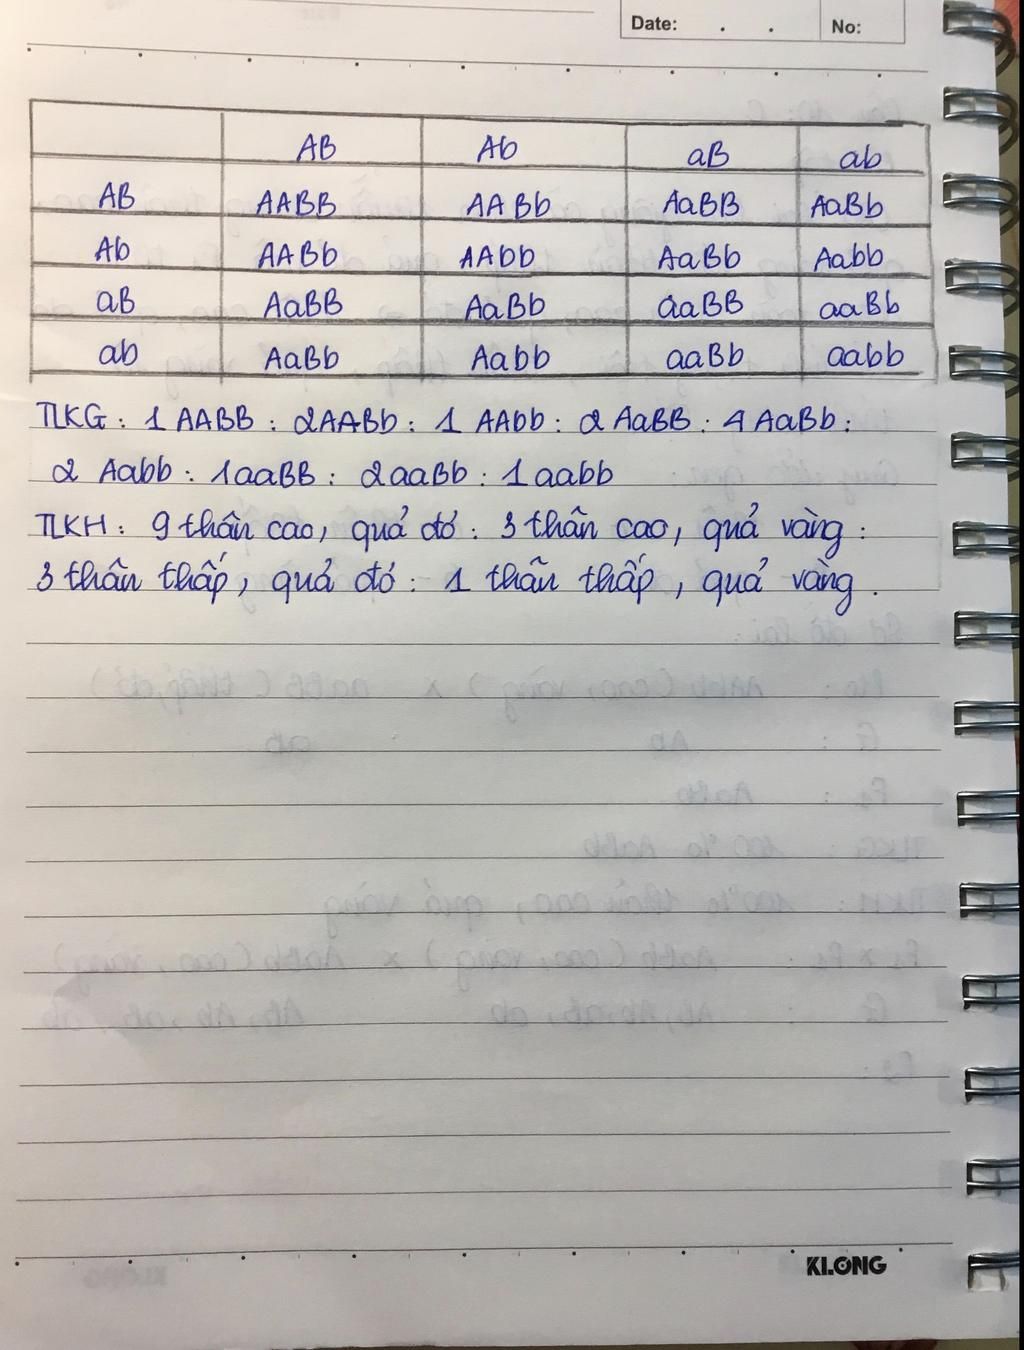 Date: . . No:
AB Ab aB ab
AB AABB AABb AaBB AaBb
Ab AABb AAbb AaBb Aabb
aB AaBB AaBb aaBB aaBb
ab AaBb Aabb aaBb aabb
TLKG : 1 AABB : 2AABb : 1 AAbb : 2 AaBB : 4 AaBb :
2 Aabb : 1aaBB : 2aaBb : 1 aabb
TLKH : 9 thân cao, quả đỏ : 3 thân cao, quả vàng :
3 thân thấp, quả đỏ : 1 thân thấp, quả vàng .
KLONG